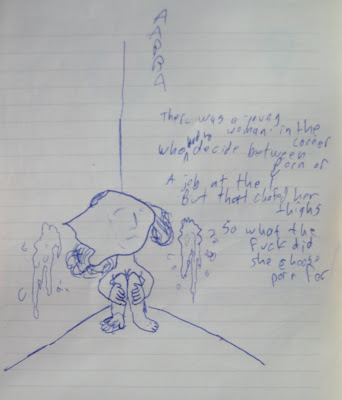 A
A
B
B
A
There was a young
woman in the
corner
who had to decide between
porn or
A job at the
But that chafed her
thighs
So what the
fuck did
she choose
porn for